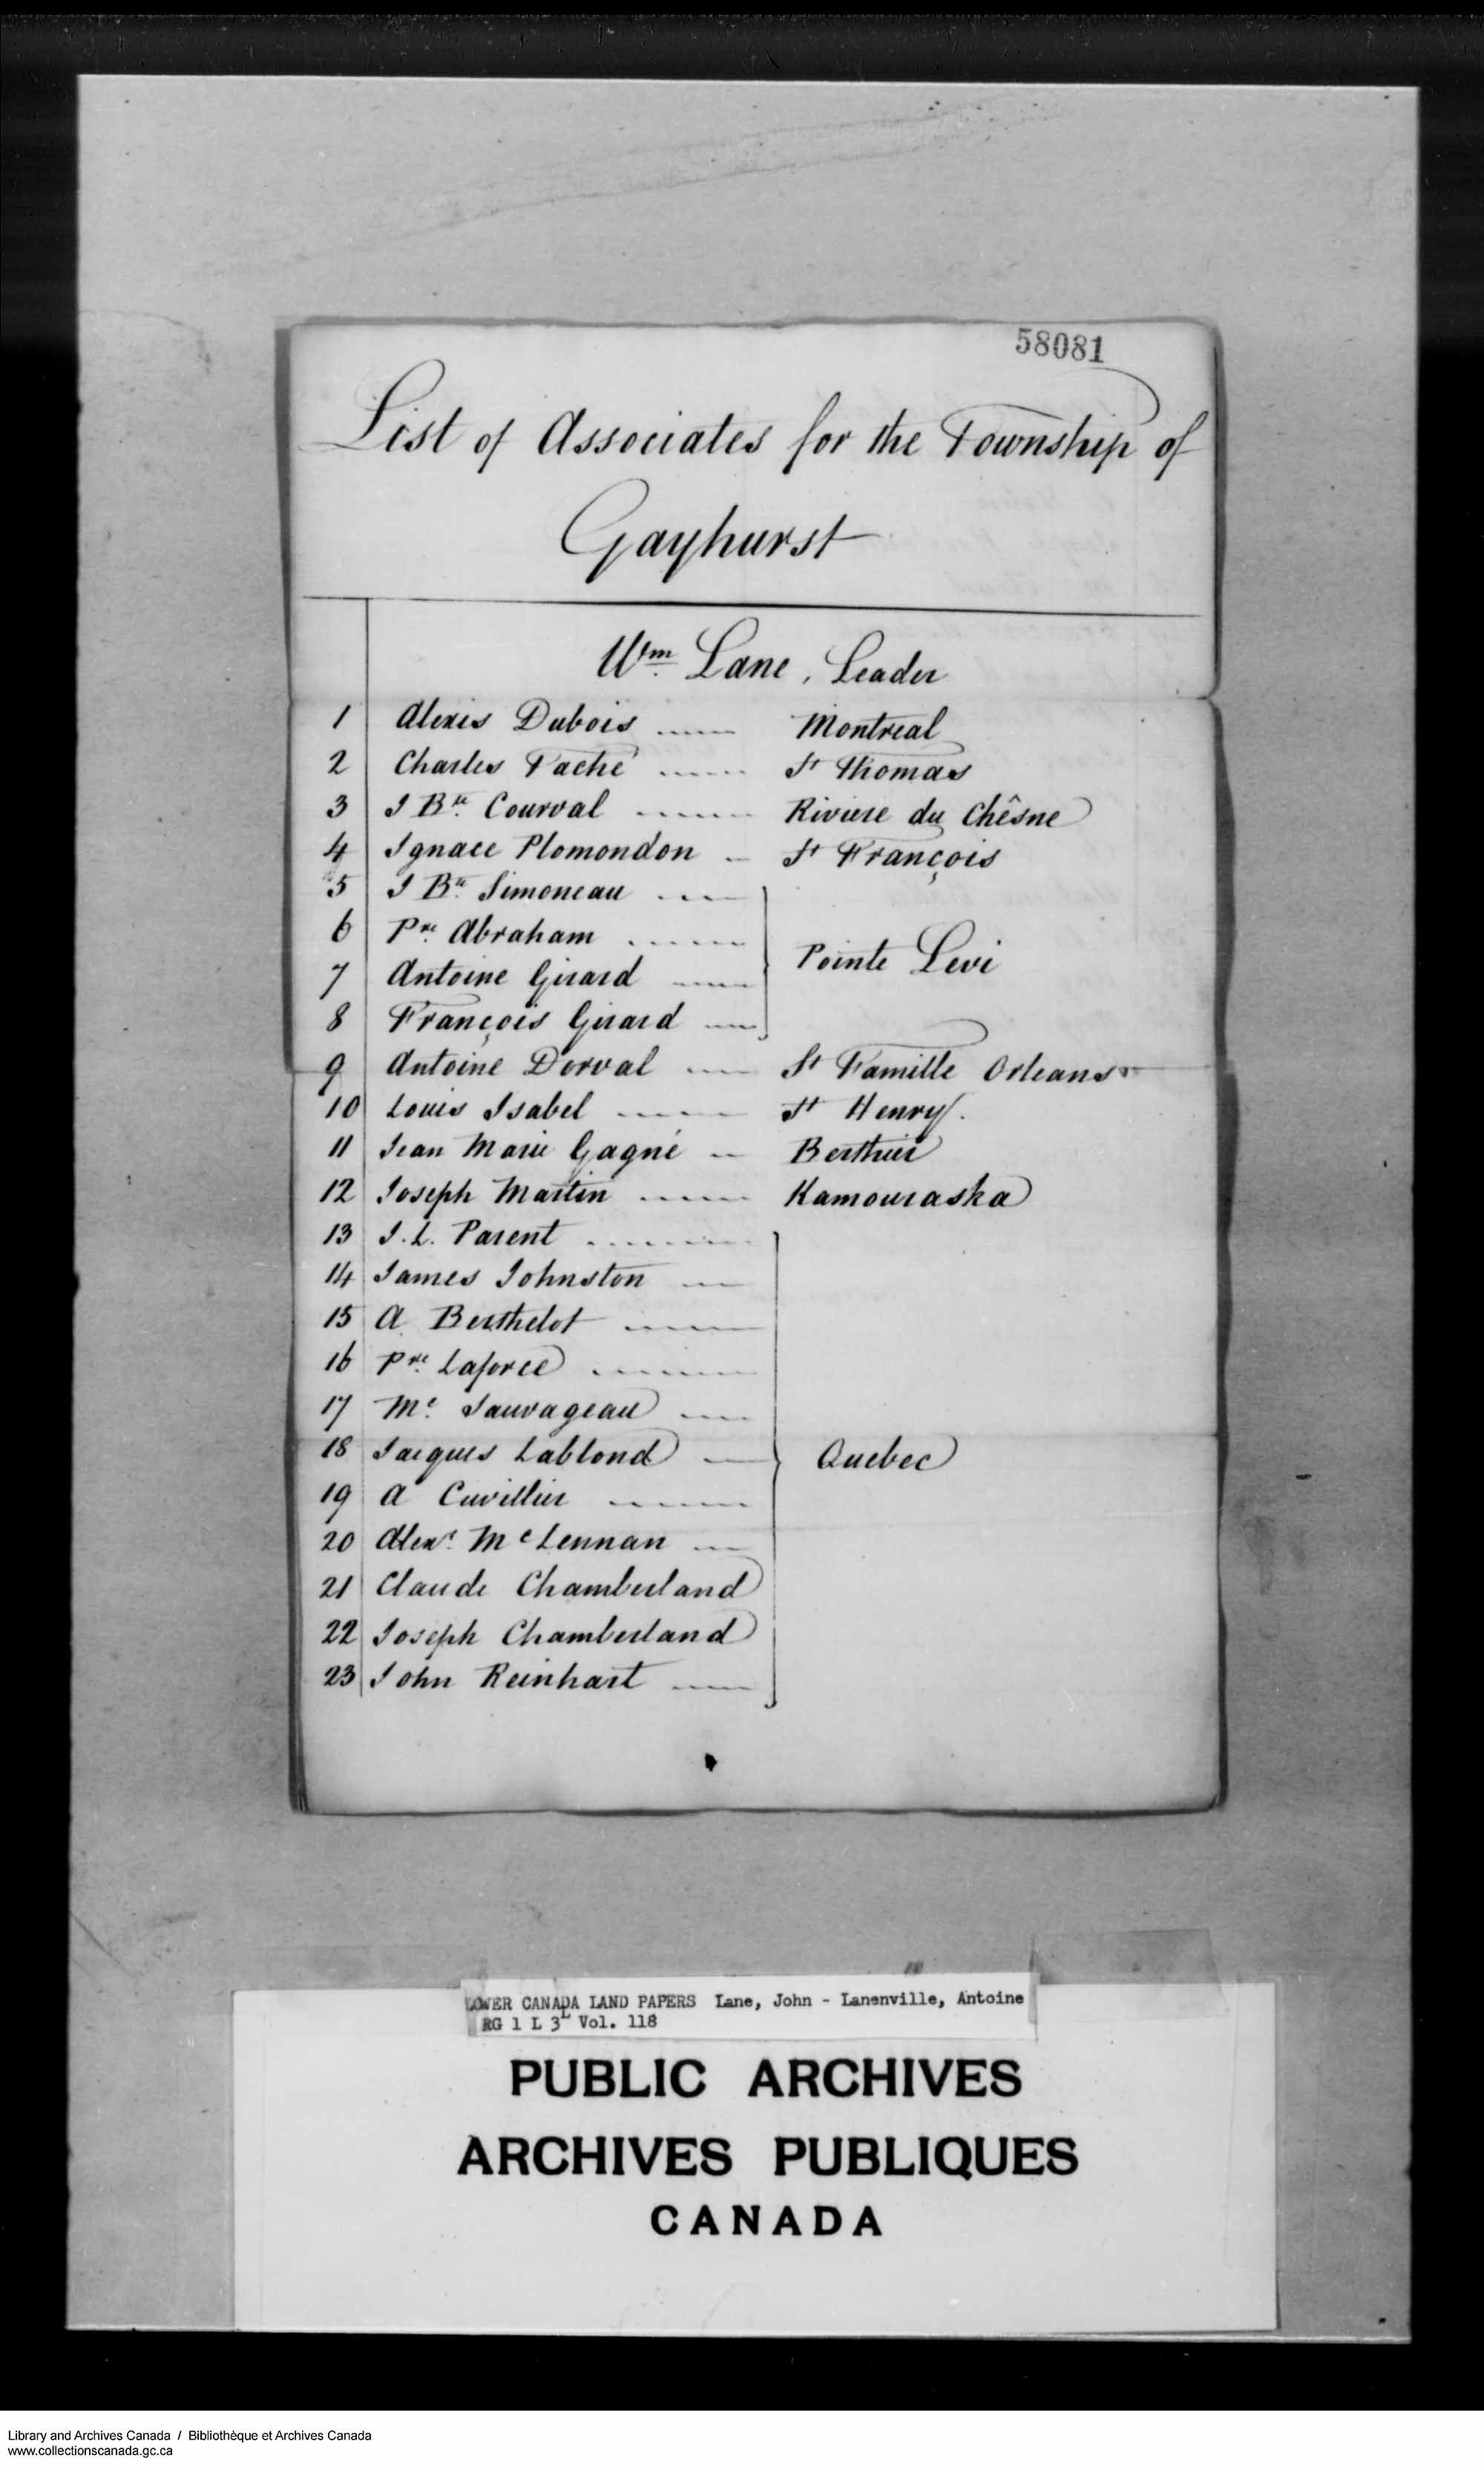 58081
List of Associates for the Township of
Gayhurst
Wm. Lane, Leader
1 Alexis Dubois ...... Montreal
2 Charles Taché ...... St Thomas
3 J Bte. Courval ...... Riviere du Chêsne
4 Ignace Plomondon .. St François
5 J Bte. Simoneau ....
6 Pre. Abraham ......
Pointe Levi
7 Antoine Girard .....
8 François Girard ....
9 Antoine Dorval .... St Famille Orleans
10 Louis Isabel ...... St Henry.
11 Jean Marie Gagné .. Berthier
12 Joseph Martin ...... Kamouraska
13 J. L. Parent ........
14 James Johnston ...
15 A Berthelot ......
16 Pre. Laforce .......
17 Mc. Sauvageau ....
18 Jacques Lablond ... Quebec
19 A Cuvillier ......
20 Alexr. McLennan ...
21 Claude Chamberland
22 Joseph Chamberland
23 John Reinhart .....
LOWER CANADA LAND PAPERS Lane, John - Lanenville, Antoine
RG 1 L 3L Vol. 118
PUBLIC ARCHIVES
ARCHIVES PUBLIQUES
CANADA
Library and Archives Canada / Bibliothèque et Archives Canada
www.collectionscanada.gc.ca